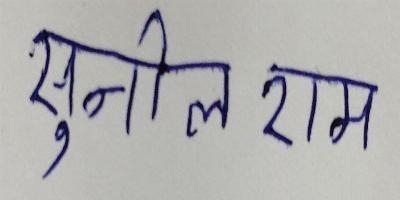 सुनील राम